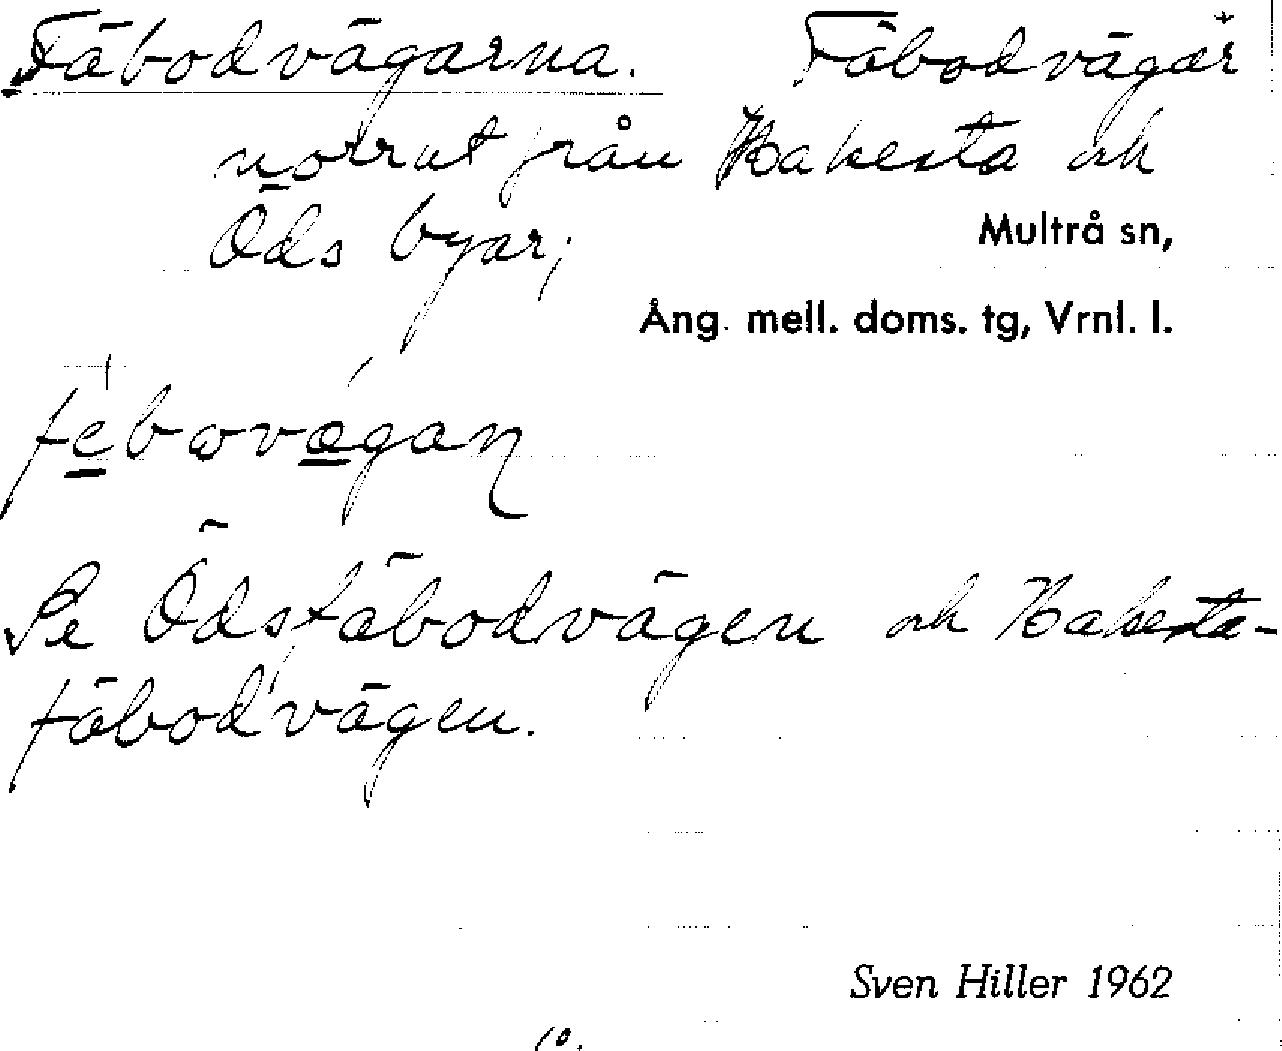 Fäbodvägarna. Fäbodvägar
norrut från Hakesta och
Öds byar;
Multrå sn,
Ång. mell. doms. tg, Vrnl. l.
Se Ödsfäbodvägen och Hakesta-
fäbodvägen.
Sven Hiller 1962
10.